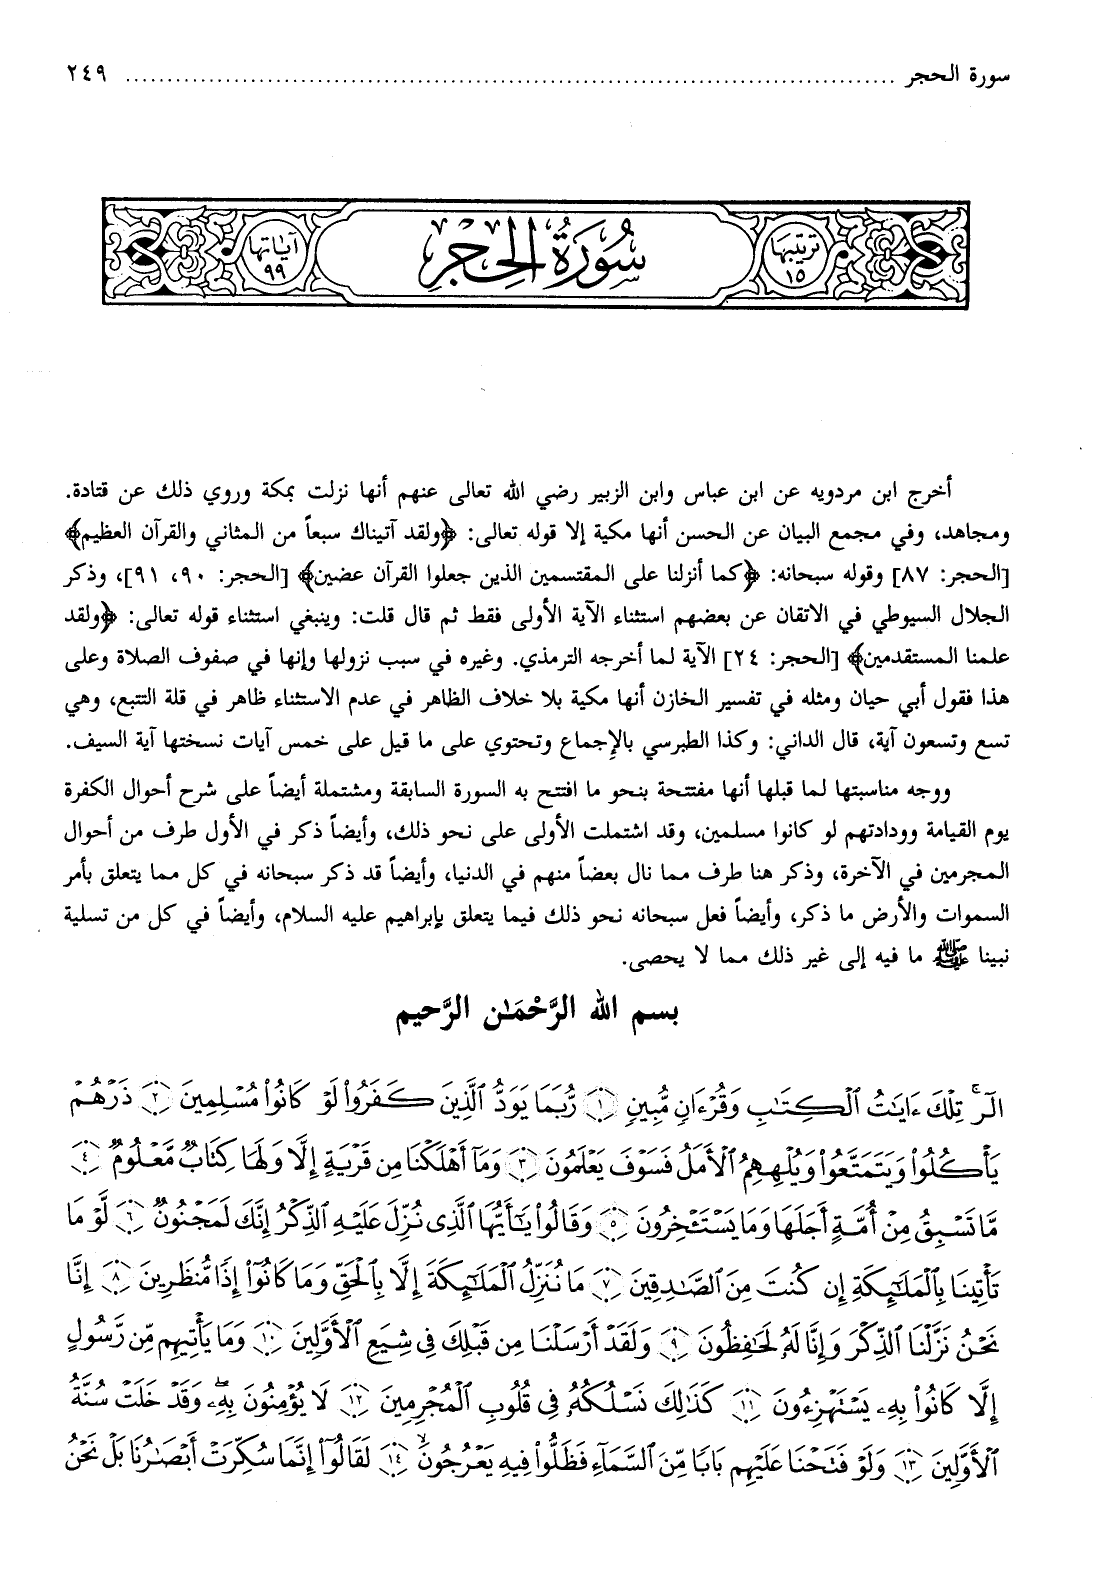 سورة الحجر ........................................................................................ ٢٤٩
ترتيبها ١٥
سُورَةُ الحِجْرِ
آياتها ٩٩
أخرج ابن مردويه عن ابن عباس وابن الزبير رضي الله تعالى عنهم أنها نزلت بمكة وروي ذلك عن قتادة.
ومجاهد، وفي مجمع البيان عن الحسن أنها مكية إلا قوله تعالى: ﴿ولقد آتيناك سبعاً من المثاني والقرآن العظيم﴾
[الحجر: ٨٧] وقوله سبحانه: ﴿كما أنزلنا على المقتسمين الذين جعلوا القرآن عضين﴾ [الحجر: ٩٠، ٩١]، وذكر
الجلال السيوطي في الاتقان عن بعضهم استثناء الآية الأولى فقط ثم قال قلت: وينبغي استثناء قوله تعالى: ﴿ولقد
علمنا المستقدمين﴾ [الحجر: ٢٤] الآية لما أخرجه الترمذي. وغيره في سبب نزولها وإنها في صفوف الصلاة وعلى
هذا فقول أبي حيان ومثله في تفسير الخازن أنها مكية بلا خلاف الظاهر في عدم الاستثناء ظاهر في قلة التتبع، وهي
تسع وتسعون آية، قال الداني: وكذا الطبرسي بالإجماع وتحتوي على ما قيل على خمس آيات نسختها آية السيف.
ووجه مناسبتها لما قبلها أنها مفتتحة بنحو ما افتتح به السورة السابقة ومشتملة أيضاً على شرح أحوال الكفرة
يوم القيامة وودادتهم لو كانوا مسلمين، وقد اشتملت الأولى على نحو ذلك، وأيضاً ذكر في الأول طرف من أحوال
المجرمين في الآخرة، وذكر هنا طرف مما نال بعضاً منهم في الدنيا، وأيضاً قد ذكر سبحانه في كل مما يتعلق بأمر
السموات والأرض ما ذكر، وأيضاً فعل سبحانه نحو ذلك فيما يتعلق بإبراهيم عليه السلام، وأيضاً في كل من تسلية
نبينا ﷺ ما فيه إلى غير ذلك مما لا يحصى.
بسم الله الرَّحْمَـٰن الرَّحيم
الٓرۚ تِلْكَ ءَايَـٰتُ ٱلْكِتَـٰبِ وَقُرْءَانٍ مُّبِينٍ ١ رُّبَمَا يَوَدُّ ٱلَّذِينَ كَفَرُوا۟ لَوْ كَانُوا۟ مُسْلِمِينَ ٢ ذَرْهُمْ
يَأْكُلُوا۟ وَيَتَمَتَّعُوا۟ وَيُلْهِهِمُ ٱلْأَمَلُ فَسَوْفَ يَعْلَمُونَ ٣ وَمَآ أَهْلَكْنَا مِن قَرْيَةٍ إِلَّا وَلَهَا كِتَابٌ مَّعْلُومٌ ٤
مَّا تَسْبِقُ مِنْ أُمَّةٍ أَجَلَهَا وَمَا يَسْتَـْٔخِرُونَ ٥ وَقَالُوا۟ يَـٰٓأَيُّهَا ٱلَّذِى نُزِّلَ عَلَيْهِ ٱلذِّكْرُ إِنَّكَ لَمَجْنُونٌ ٦ لَّوْ مَا
تَأْتِينَا بِٱلْمَلَـٰٓئِكَةِ إِن كُنتَ مِنَ ٱلصَّـٰدِقِينَ ٧ مَا نُنَزِّلُ ٱلْمَلَـٰٓئِكَةَ إِلَّا بِٱلْحَقِّ وَمَا كَانُوٓا۟ إِذًا مُّنظَرِينَ ٨ إِنَّا
نَحْنُ نَزَّلْنَا ٱلذِّكْرَ وَإِنَّا لَهُۥ لَحَـٰفِظُونَ ٩ وَلَقَدْ أَرْسَلْنَا مِن قَبْلِكَ فِى شِيَعِ ٱلْأَوَّلِينَ ١٠ وَمَا يَأْتِيهِم مِّن رَّسُولٍ
إِلَّا كَانُوا۟ بِهِۦ يَسْتَهْزِءُونَ ١١ كَذَٰلِكَ نَسْلُكُهُۥ فِى قُلُوبِ ٱلْمُجْرِمِينَ ١٢ لَا يُؤْمِنُونَ بِهِۦۖ وَقَدْ خَلَتْ سُنَّةُ
ٱلْأَوَّلِينَ ١٣ وَلَوْ فَتَحْنَا عَلَيْهِم بَابًا مِّنَ ٱلسَّمَآءِ فَظَلُّوا۟ فِيهِ يَعْرُجُونَۙ ١٤ لَقَالُوٓا۟ إِنَّمَا سُكِّرَتْ أَبْصَـٰرُنَا بَلْ نَحْنُ